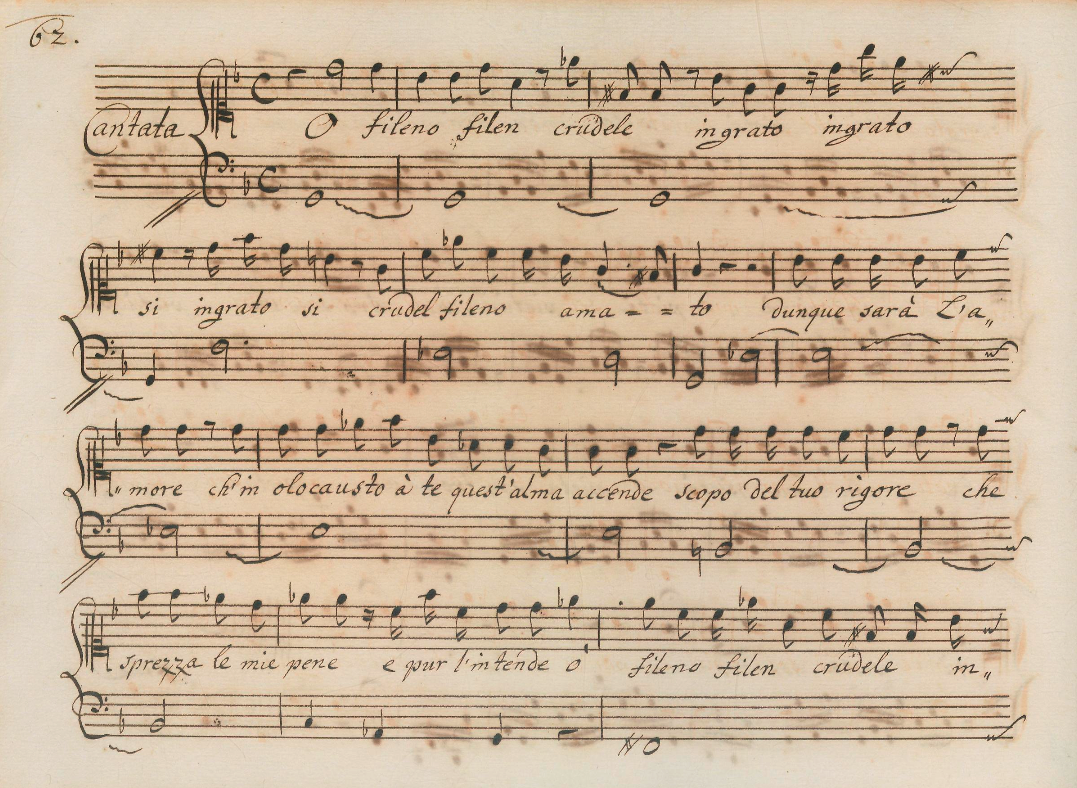 62.
Cantata
O fileno filen crudele ingrato ingrato
si ingrato si crudel fileno ama = = to dunque sarà L'a„
„more ch'in olocausto à te quest'alma accende scopo del tuo rigore che
sprezza le mie pene e pur l'intende o fileno filen crudele in„